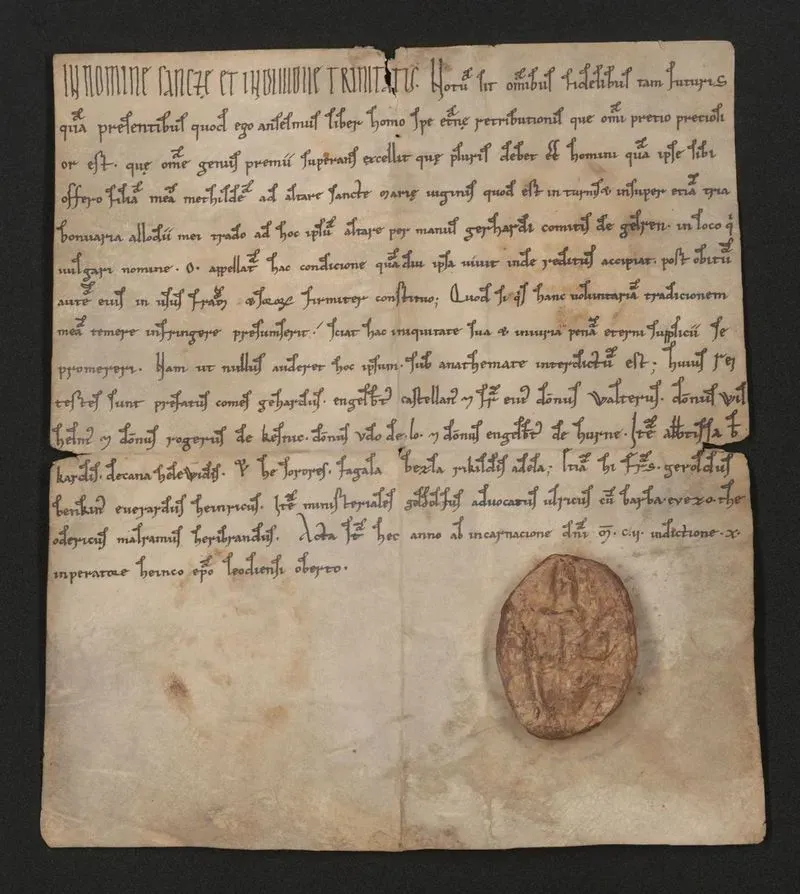 IN NOMINE SANCTE ET INDIVIDUE TRINITATIS. Notū sit om̄ibus fidelibus tam futuris
quā presentibus quod ego anselmus liber homo spe et̄nę retributionis que om̄i pretio pretiosi
or est. quę om̄e genus premii superans excellit quę pluris debet eē homini quā ipse sibi
offero filiā meā methildē ad altare sancte marię uirginis quod est in turnis & insuper etiā tria
bonuaria allodii mei trado ad hoc ipsū altare per manus gerhardi comitis de gelren. in loco q̇
uulgari nomine. O. appellat̄ hac condicione quādiu ipsa uiuit inde reditus accipiat. post obitū
autē eius in usus fratrū & firmiter constituo; Quod si q̇s hanc uoluntariā tradicionem
meā temere infringere presumserit. sciat hac iniquitate sua & iniuria penā eterni supplicii se
promereri. Nam ut nullus auderet hoc ipsum. sub anathemate interdictū est; huius rei
testes sunt prefatus comes gehardus. engelbt̄ castellan⁊ ⁊ fr̄ ei⁊ dōnus walterus. dōnus wil
helm⁊ ⁊ dōnus rogerus de kesnic. dōnus udo de lo. ⁊ dōnus engelbt̄ de hurne. Itē abbtissa b̄
kardis. decana helewidis. & he sorores. fagala berta rikildis adela; Itā hi fr̄s. geroldus
euerardus heinricus. Itē ministeriales advocatus ulricus cū barba. the
odericus heribrandus. Acta st̄ hec anno ab incarnacione dn̄i ō. c. ii. indictione. x.
inperatore heinco ep̄o leodiensi oberto.